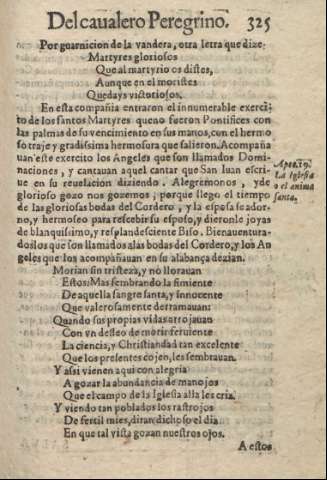 Del caualero Peregrino. 325
Por guarnicion de la vandera, otra letra que dize:
Martyres gloriosos
Que al martyrio os distes,
Aunque en el moristes
Quedays victoriosos.
En esta compañia entraron el innumerable exerci
to de los santos Martyres que no fueron Pontifices con
las palmas de su vencimiento en sus manos, con el hermo
so traje y gradissima hermosura que salieron. Acompaña
uan este exercito los Angeles que son llamados Domi-
naciones, y cantauan aquel cantar que San Iuan escri-
ue en su reuelacion diziendo. Alegremonos, y de
glorioso gozo nos gozemos, porque llego el tiempo
de las gloriosas bodas del Cordero, y la esposa se ador-
no, y hermoseo para rescebir su esposo, y dieronle joyas
de blanquissimo, y resplandesciente Biso. Bienauentura-
dos los que son llamados a las bodas del Cordero, y los An
geles que los acompañauan en su alabança dezian.
Apoc. 19.
La Iglesia
o el anima
santa.
Morian sin tristeza, y no llorauan
Estos: Mas sembrando la simiente
De aquella sangre santa, y innocente
Que valerosamente derramauan:
Quando sus propias vidas arrojauan
Con vn desseo de morir feruiente
La ciencia, y Christiandad tan excelente
Que los presentes cojen, les sembrauan.
Y assi vienen aqui con alegria
A gozar la abundancia de manojos
Que el campo de la Iglesia alla les cria.
Y viendo tan poblados los rastrojos
De fertil mies, diran dichoso el dia
En que tal vista gozan nuestros ojos.
A estos